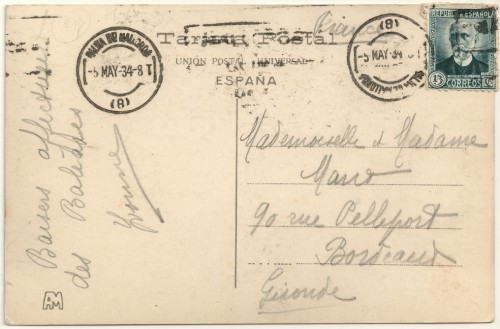 (France)
Tarjeta Postal
UNIÓN POSTAL UNIVERSAL
ESPAÑA
PALMA DE MALLORCA
-5 MAY-34-8 T
(8)
(8)
-5 MAY-34-8 T
REPUBLICA ESPAÑOLA
15 CORREOS Cts
Baisers affectueux
des Baléares
Yvonne
Mademoiselle et Madame
90 rue Pelleport
Bordeaux
Gironde
AM